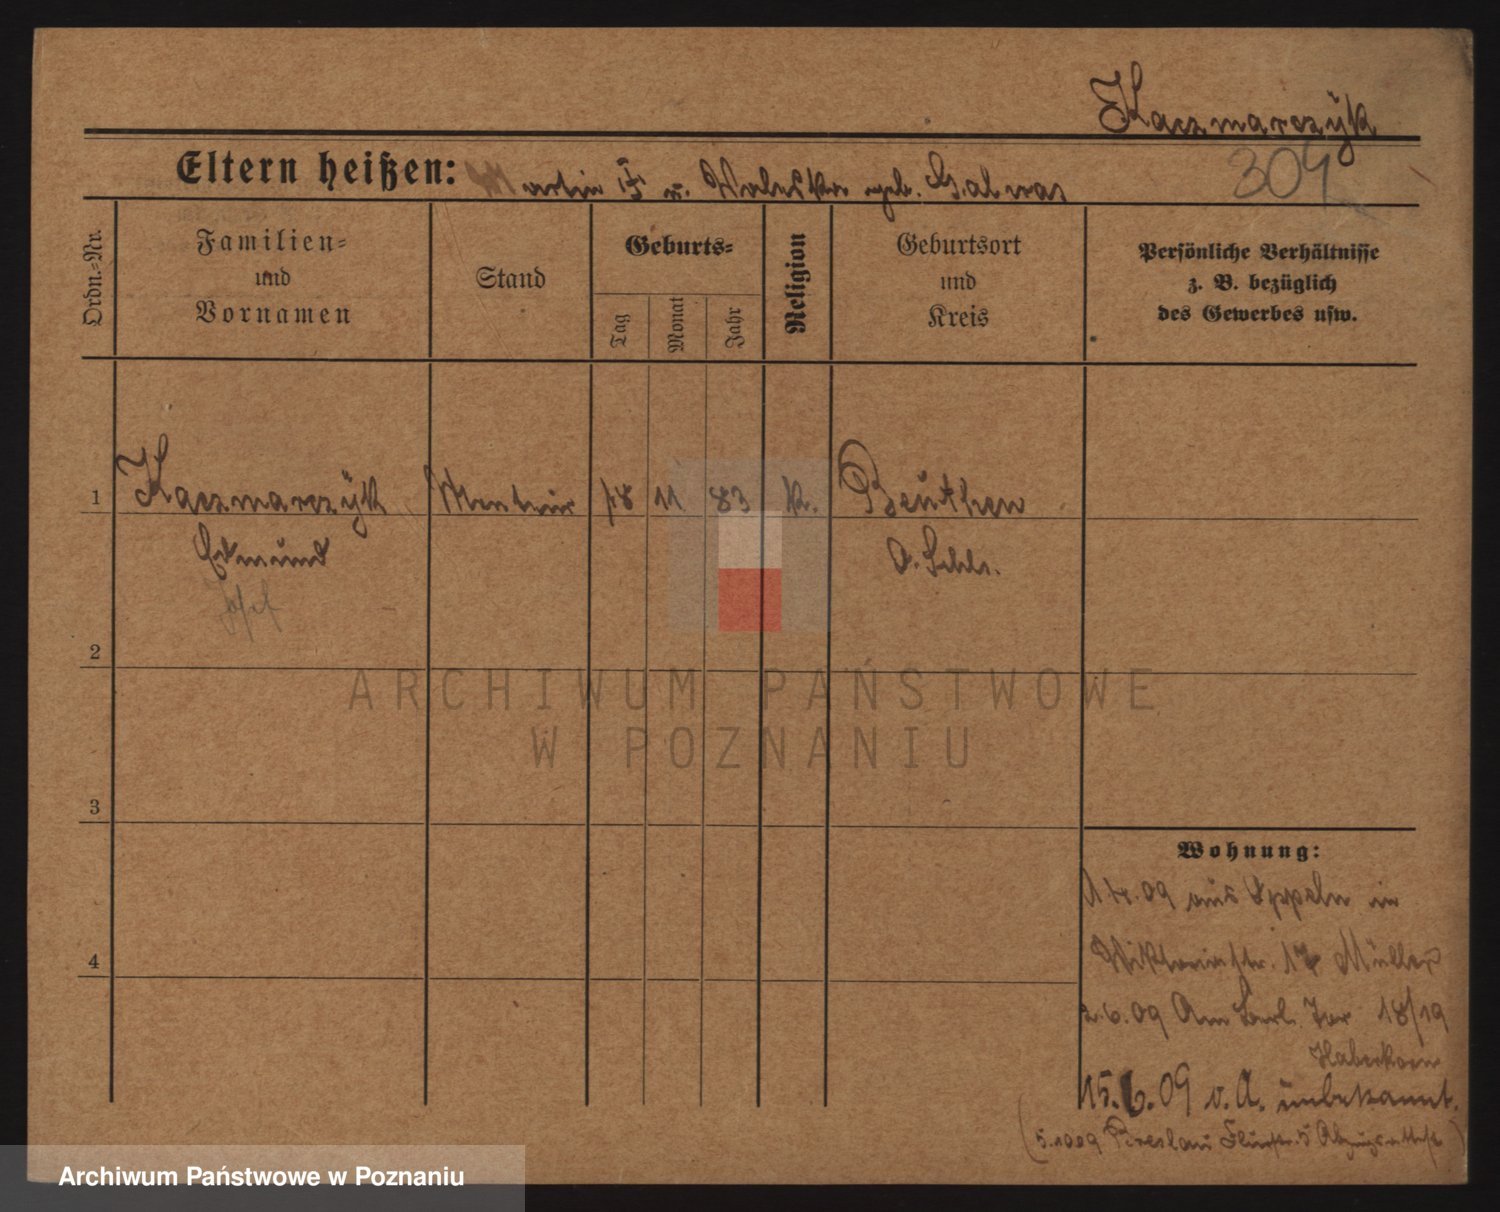 Kaczmarczyk
Eltern heißen: Martin † u. Waleska geb. Galwas
304
Ordn.=Nr.
Familien=
und
Vornamen
Stand
Geburts=
Tag
Monat
Jahr
Religion
Geburtsort
und
Kreis
Persönliche Verhältnisse
z. B. bezüglich
des Gewerbes usw.
1 Kaczmarczyk Monteur 18 11 83 k. Beuthen
Edmund O. Schls.
Josef
2
3
4
Wohnung:
09 aus Oppeln in
Viktoriastr. 17 Müller
2.6.09 Am Berl. Tor 18/19
Haberkorn
15.6.09 v. A. unbekannt.
(5.10 09 Breslau Flurstr. 5 Abzugsattest)
ARCHIWUM PAŃSTWOWE
W POZNANIU
Archiwum Państwowe w Poznaniu